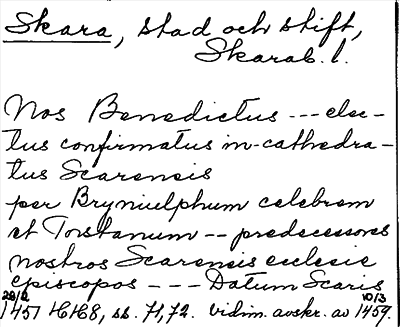 Skara, stad och stift,
Skarab. l.
Nos Benedictus --- elec-
tus confirmatus in-cathedra-
tus Scarensis
per Bryniulphum celebrem
et Torstanum -- predecessores
nostros Scarensis ecclesie
episcopos --- Datum Scaris
29/2 10/3
1451 HH8, ss. 71, 72. vidim. avskr. av 1459.